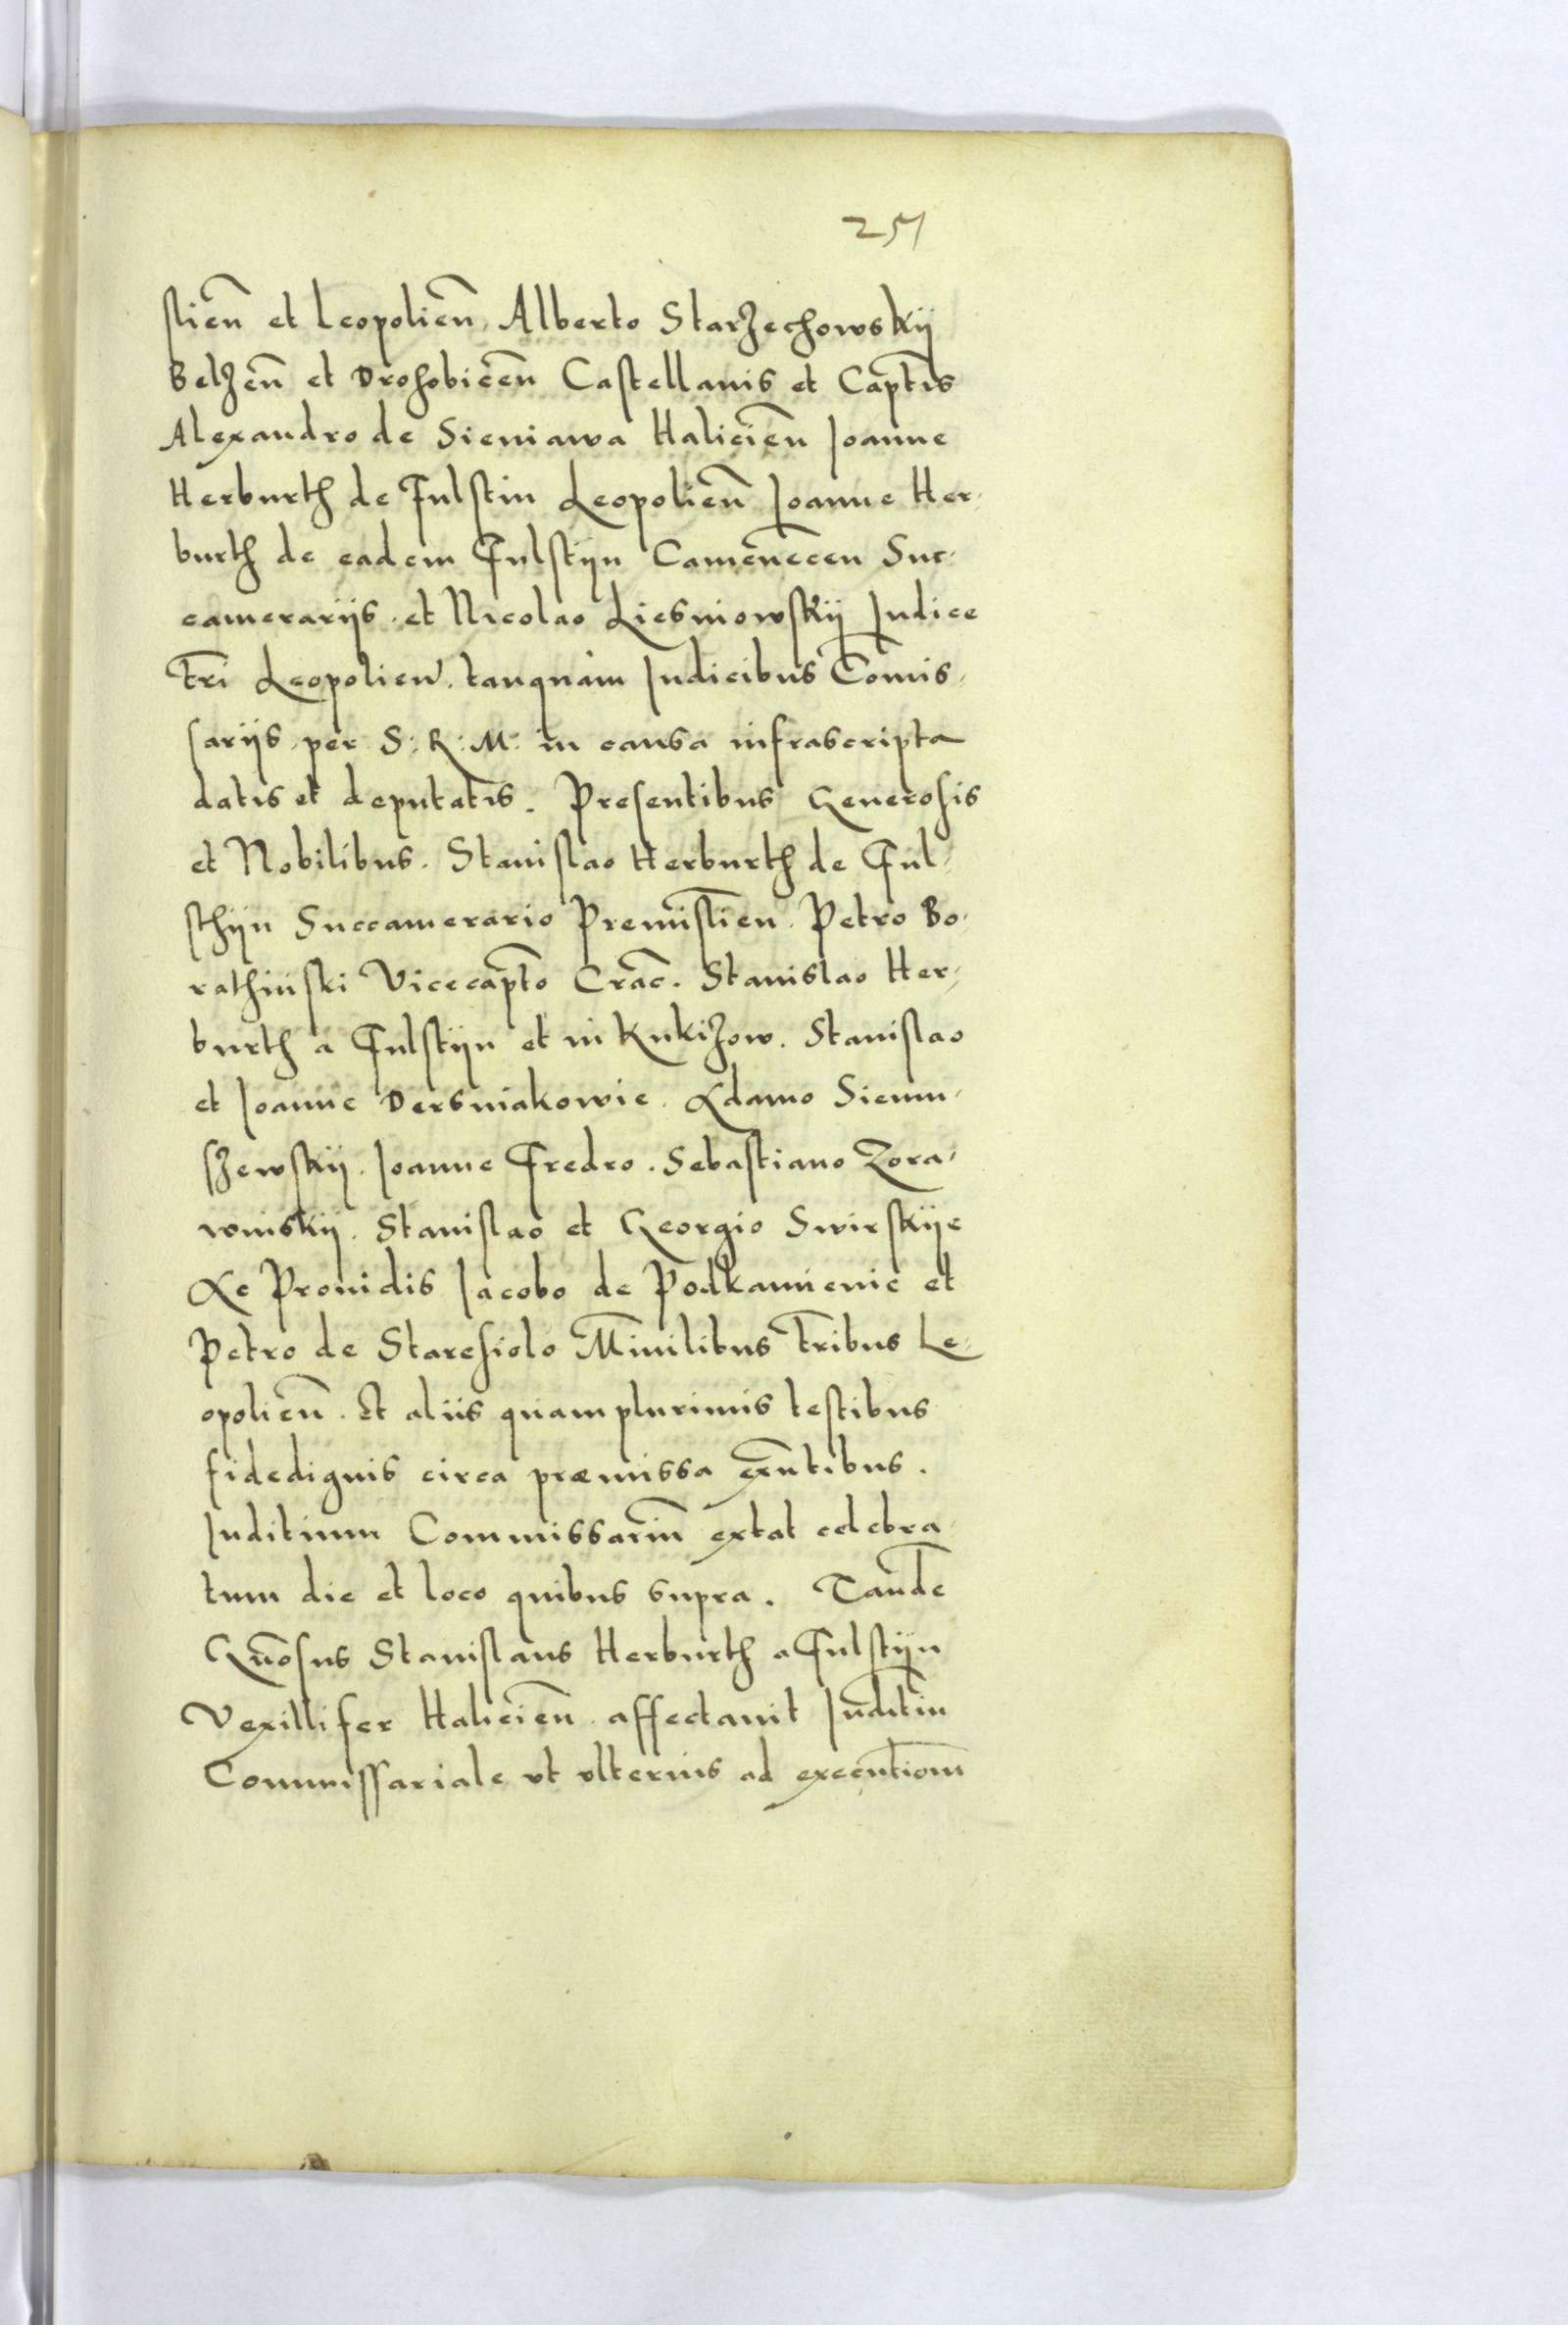 257
stien̄ et Leopolien̄, Alberto Starzechowskij
Belzen̄ et Drohobicen̄ Castellanis et Capt̄is
Alexandro de Sieniawa Halicien̄ Joanne
Herburth de Fulstin Leopolien̄ Joanne Her-
burth de eadem Fulstijn Camenecen̄ Suc-
camerarijs. et Nicolao Liesniowskij Judice
Tr̄i Leopolien̄. tanquam Judicibus Com̄is-
sarijs per S: R: M: in causa infrascripta
datis et deputatis. Presentibus Generosis
et Nobilibus. Stanislao Herburth de Ful-
sthijn Succamerario Premistien̄. Petro Bo-
rathinski Vicecapt̄o Crac̄. Stanislao Her-
burth a Fulstijn et in Kukizow. Stanislao
et Joanne Dersniakowie. Adamo Sienu-
szewskij. Joanne Fredro. Sebastiano Zora-
winskij. Stanislao et Georgio Swirskije
Ac Prouidis Jacobo de Podkamienie et
Petro de Staresiolo Mīnilibus Tr̄ibus Le-
opolien̄. Et aliis quamplurimis testibus
fidedignis circa præmissa ex̄ntibus.
Juditium Commissariu̅ extat celebra-
tum die et loco quibus supra. Tande̅
Gn̄osus Stanislaus Herburth a Fulstijn
Vexillifer Halicien̄. affectauit Juditiu̅
Commissariale vt vlterius ad executione̅